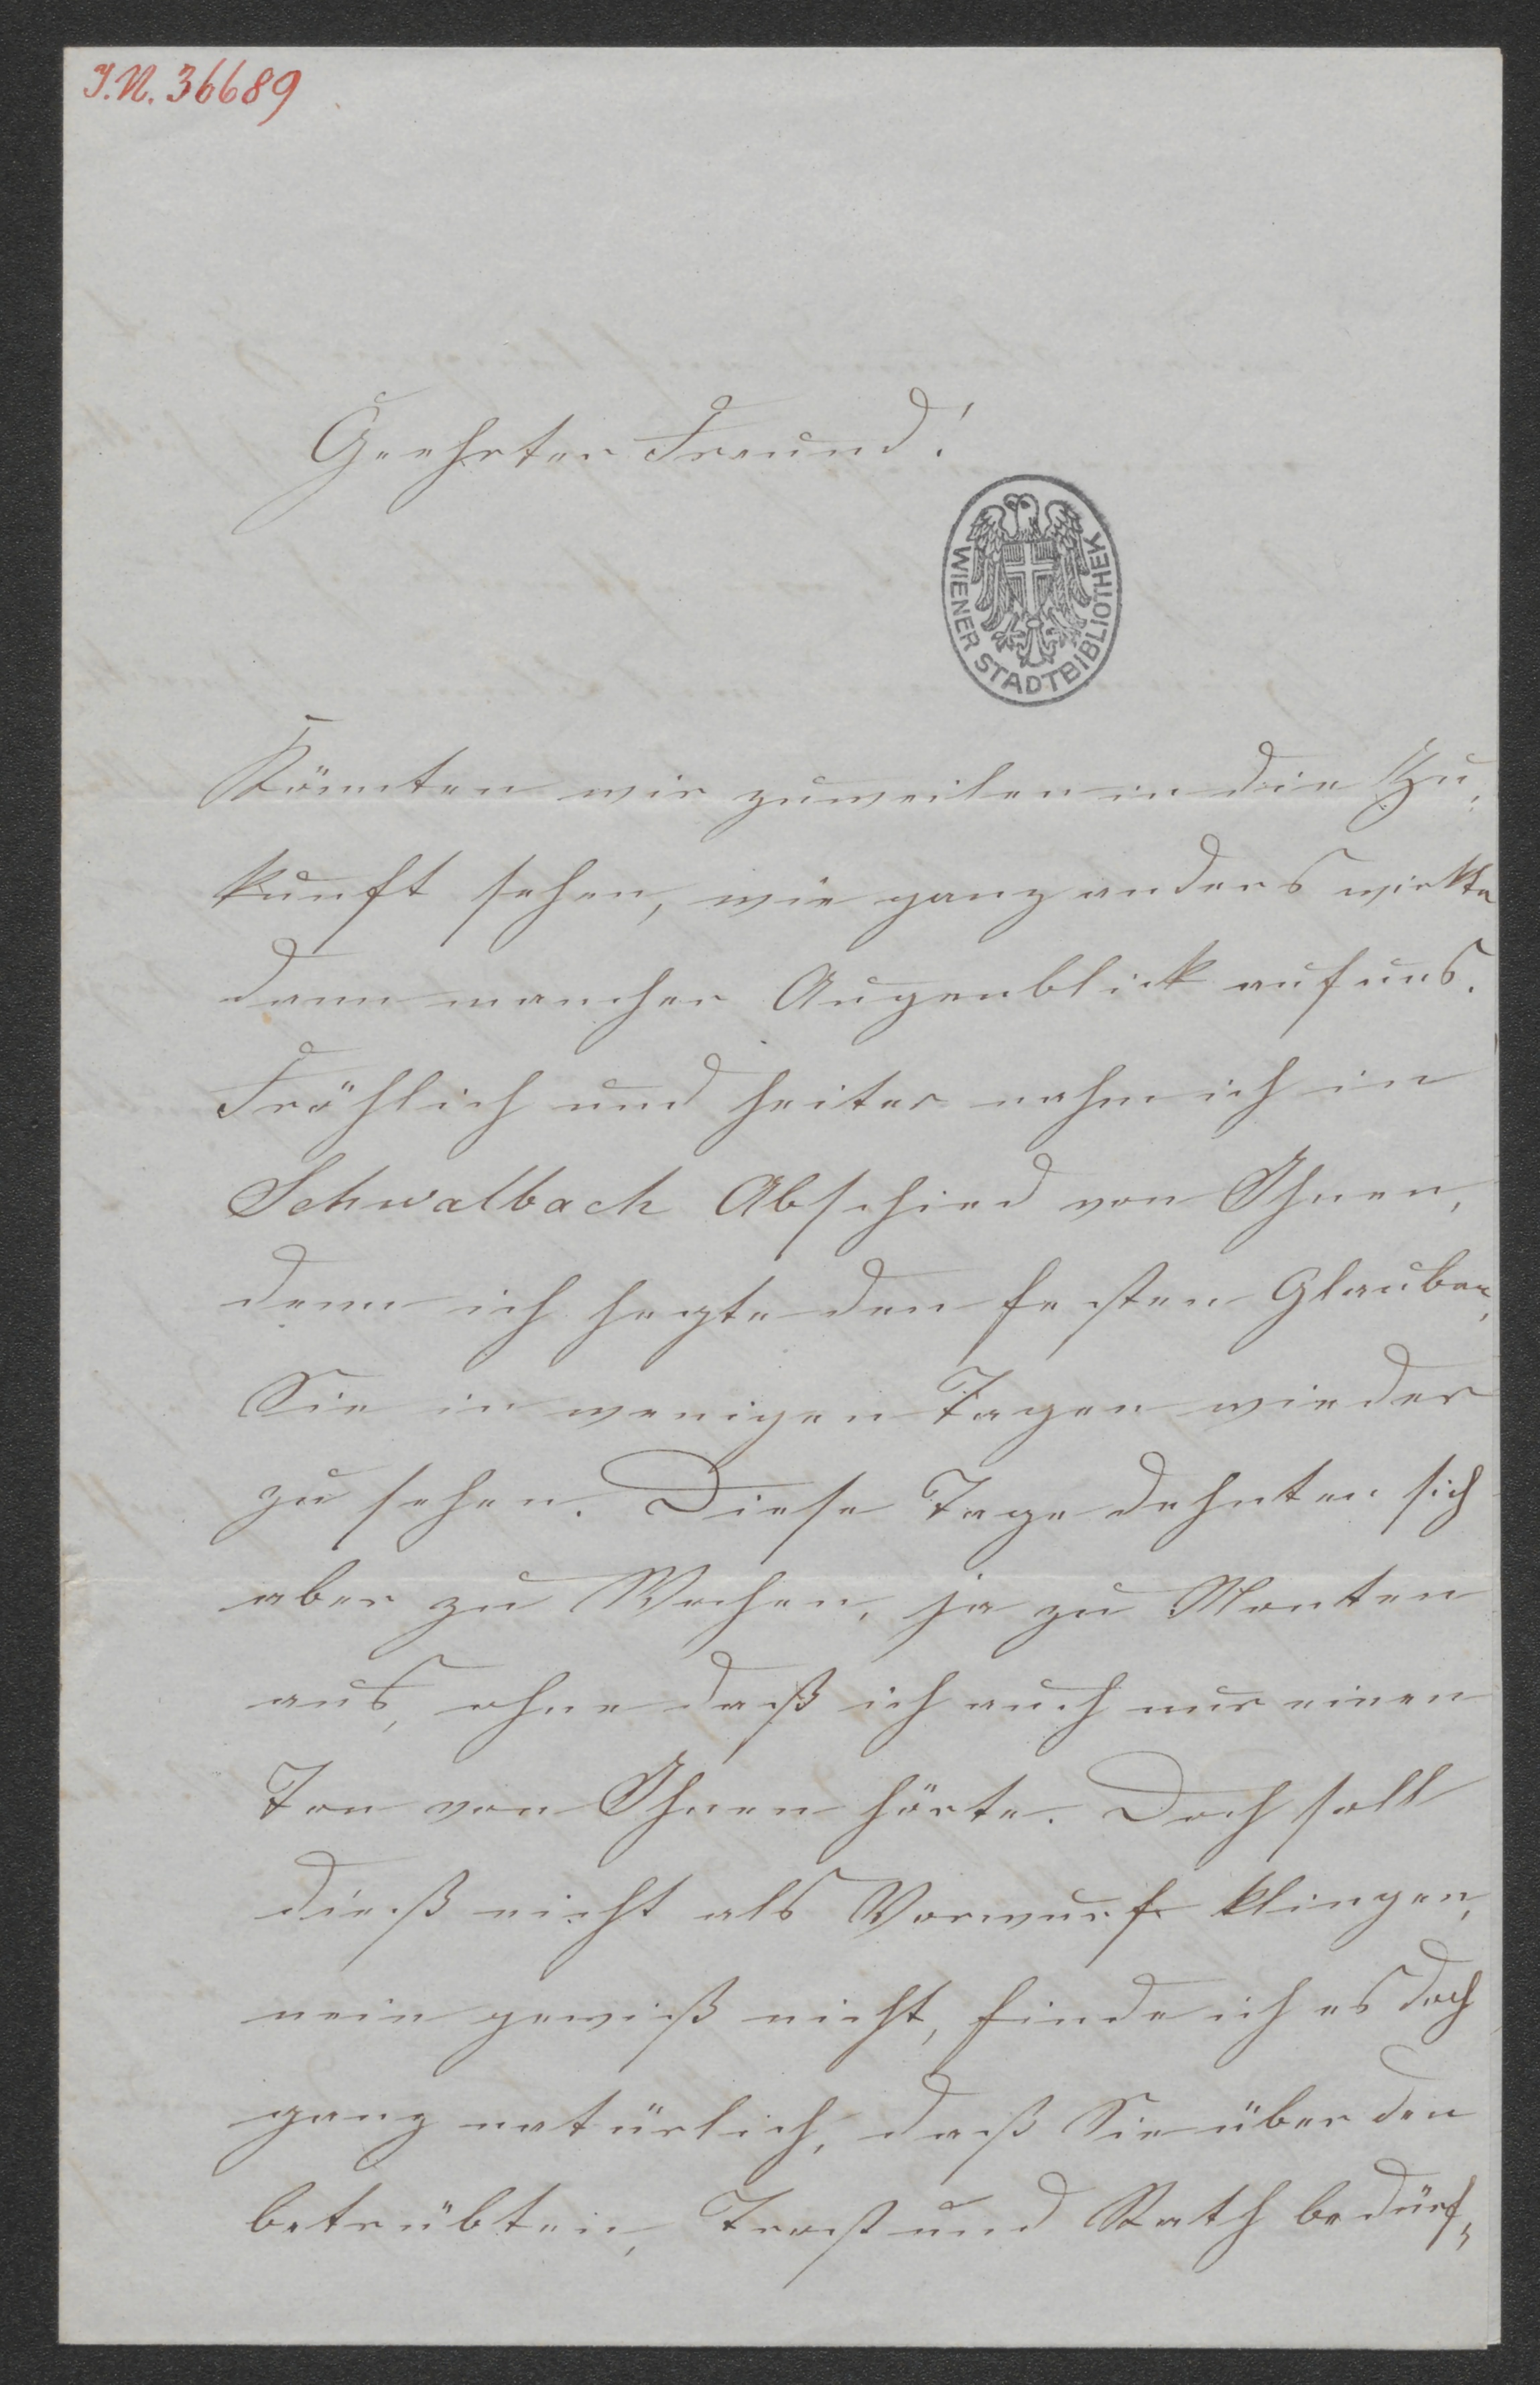 I.N. 36689
Geehrter Freund!
WIENER STADTBIBLIOTHEK
Könnten wir zuweilen in die Zu-
kunft sehen, wie ganz anders wirkte
dann mancher Augenblick auf uns.
Fröhlich und heiter nahm ich in
Schwalbach Abschied von Ihnen,
denn ich hegte den festen Glauben,
Sie in wenigen Tagen wieder
zu sehen. Diese Tage dehnten sich
aber zu Wochen, ja zu Monten
aus, ohne daß ich auch nur einen
Ton von Ihnen hörte. Doch soll
dieß nicht als Vorwurf klingen,
nein gewiß nicht, finde ich es doch
ganz natürlich, daß Sie über den
betrübten, Trost und Rath bedürf-